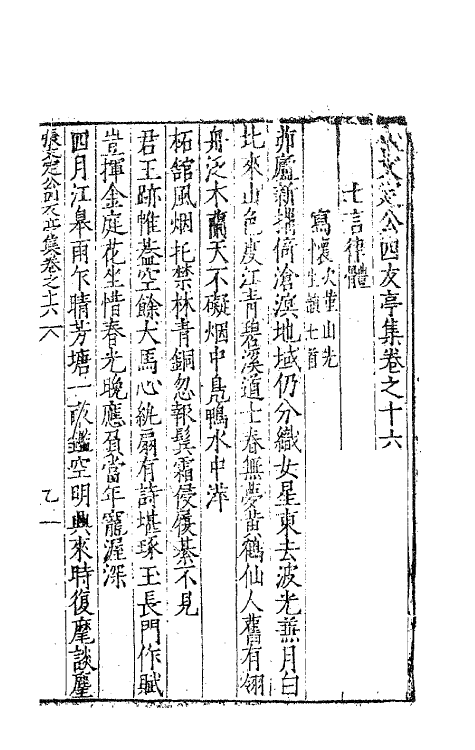 張文定公四友亭集卷之十六
七言律體
寫懷次董山先生韻七首
茆廬新構倚滄溟地域仍分織女星東去波光兼月白
北來山色度江青碧溪道士春無夢黃鶴仙人舊有翎
舟泛木蘭天不礙烟中鳧鴨水中萍
柘館風烟托禁林青銅忽報鬂霜侵屨綦不見
君王跡帷蓋空餘犬馬心紈扇有詩堪琢玉長門作賦
豈揮金庭花坐惜春光晚應負當年寵渥深
四月江皋雨乍晴芳塘一畝鑑空明興來時復麾談麈
張文定公四友亭集卷之十六 乙一